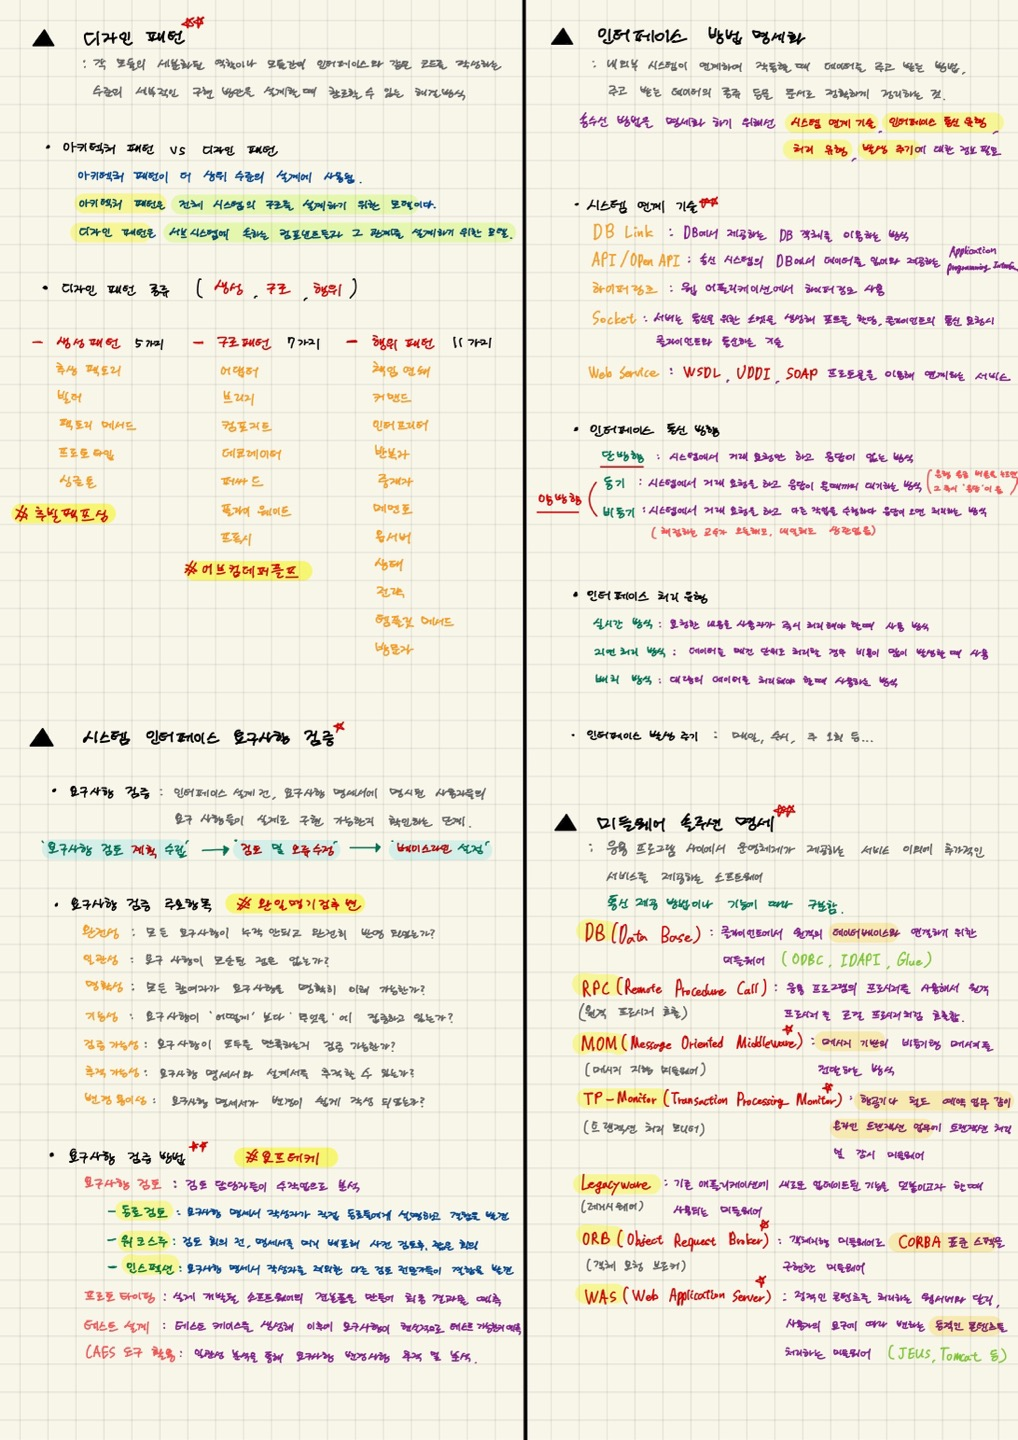 ▲ 디자인 패턴 ☆☆
: 각 모듈의 세분화된 역할이나 모듈간의 인터페이스와 같은 코드를 작성하는
수준의 세부적인 구현 방안을 설계할 때 참조할 수 있는 해결방식
• 아키텍처 패턴 VS 디자인 패턴
아키텍처 패턴이 더 상위 수준의 설계에 사용됨.
아키텍처 패턴은 전체 시스템의 구조를 설계하기 위한 모델이다.
디자인 패턴은 서브시스템에 속하는 컴포넌트들과 그 관계를 설계하기 위한 모델.
• 디자인 패턴 종류 ( 생성, 구조, 행위 )
- 생성 패턴 5가지
추상 팩토리
빌더
팩토리 메서드
프로토타입
싱글톤
※ 추빌팩프싱
- 구조 패턴 7가지
어댑터
브리지
컴포지트
데코레이터
퍼싸드
플라이 웨이트
프록시
※ 어브컴데퍼플프
- 행위 패턴 11가지
책임 연쇄
커맨드
인터프리터
반복자
중재자
메멘토
옵서버
상태
전략
템플릿 메서드
방문자
▲ 시스템 인터페이스 요구사항 검증 ☆
• 요구사항 검증 : 인터페이스 설계 전, 요구사항 명세서에 명시된 사용자들의
요구 사항들이 설계로 구현 가능한지 확인하는 단계.
'요구사항 검토 계획 수립' → '검토 및 오류수정' → '베이스라인 설정'
• 요구사항 검증 주요항목 ※ 완일명기검추변
완전성 : 모든 요구사항이 누락 안되고 완전히 반영 되었는가?
일관성 : 요구 사항이 모순된 점은 없는가?
명확성 : 모든 참여자가 요구사항을 명확히 이해 가능한가?
기능성 : 요구사항이 '어떻게' 보다 '무엇을'에 집중하고 있는가?
검증 가능성 : 요구사항이 모두를 만족하는지 검증 가능한가?
추적 가능성 : 요구사항 명세서와 설계서를 추적할 수 있는가?
변경 용이성 : 요구사항 명세서가 변경이 쉽게 작성 되었는가?
• 요구사항 검증 방법 ☆☆ ※ 요프테케
요구사항 검토 : 검토 담당자들이 수작업으로 분석
- 동료검토 : 요구사항 명세서 작성자가 직접 동료들에게 설명하고 결함을 발견
- 워크스루 : 검토 회의 전, 명세서를 미리 배포해 사전 검토후, 짧은 회의
- 인스펙션 : 요구사항 명세서 작성자를 제외한 다른 검토 전문가들이 결함을 발견
프로토 타이핑 : 실제 개발될 소프트웨어의 견본품을 만들어 최종 결과물 예측
테스트 설계 : 테스트 케이스를 생성해 이후에 요구사항이 현실적으로 테스트 가능한지 예측
CAES 도구 활용 : 일관성 분석을 통해 요구사항 변경사항 추적 및 분석.
▲ 인터페이스 방법 명세화
: 내외부 시스템이 연계하여 작동할 때 데이터를 주고 받는 방법,
주고 받는 데이터의 종류 등을 문서로 정확하게 정리하는 것.
송수신 방법을 명세화 하기 위해선 시스템 연계 기술, 인터페이스 통신 유형,
처리 유형, 발생 주기에 대한 정보 필요
• 시스템 연계 기술 ☆☆
DB Link : DB에서 제공하는 DB 객체를 이용하는 방식
API/Open API : 송신 시스템의 DB에서 데이터를 읽어와 제공하는 Application programming Interface
하이퍼링크 : 웹 어플리케이션에서 하이퍼링크 사용
Socket : 서버는 통신을 위한 소켓을 생성해 포트를 할당, 클라이언트의 통신 요청시
클라이언트와 통신하는 기술
Web Service : WSDL, UDDI, SOAP 프로토콜을 이용해 연계하는 서비스
• 인터페이스 통신 방향
단방향 : 시스템에서 거래 요청만 하고 응답이 없는 방식
양방향
동기 : 시스템에서 거래 요청을 하고 응답이 올때까지 대기하는 방식
비동기 : 시스템에서 거래 요청을 하고 다른 작업을 수행하다 응답이 오면 처리하는 방식
• 인터페이스 처리 유형
실시간 방식 : 요청한 내용을 사용자가 즉시 처리해야 할때 사용 방식
지연 처리 방식 : 데이터를 매건 단위로 처리할 경우 비용이 많이 발생할 때 사용
배치 방식 : 대량의 데이터를 처리해야 할때 사용하는 방식
• 인터페이스 발생 주기 : 매일, 수시, 주 1회 등...
▲ 미들웨어 솔루션 명세 ☆☆
: 응용 프로그램 사이에서 운영체제가 제공하는 서비스 이외에 추가적인
서비스를 제공하는 소프트웨어
통신 제공 방법이나 기능에 따라 구분함.
DB (Data Base) : 클라이언트에서 원격의 데이터베이스와 연결하기 위한
미들웨어 (ODBC, IDAPI, Glue)
RPC (Remote Procedure Call) : 응용 프로그램의 프로시저를 사용해서 원격
(원격 프로시저 호출) 프로시저를 로컬 프로시저처럼 호출함.
MOM (Message Oriented Middleware) ☆ : 메시지 기반의 비동기형 메시지를
(메시지 지향 미들웨어) 전달하는 방식
TP-Monitor (Transaction Processing Monitor) ☆ : 항공기나 철도 예약 업무 같이
(트랜잭션 처리 모니터) 온라인 트랜잭션 업무에 트랜잭션 처리
및 감시 미들웨어
Legacyware : 기존 애플리케이션에 새로운 업데이트된 기능을 덧붙이고자 할때
(레거시웨어) 사용되는 미들웨어
ORB (Object Request Broker) ☆ : 객체지향 미들웨어로 CORBA 표준 스펙을
(객체 요청 브로커) 구현한 미들웨어
WAS (Web Application Server) ☆ : 정적인 콘텐츠를 처리하는 웹서버와 달리,
사용자의 요구에 따라 변하는 동적인 콘텐츠를
처리하는 미들웨어 (JEUS, Tomcat 등)